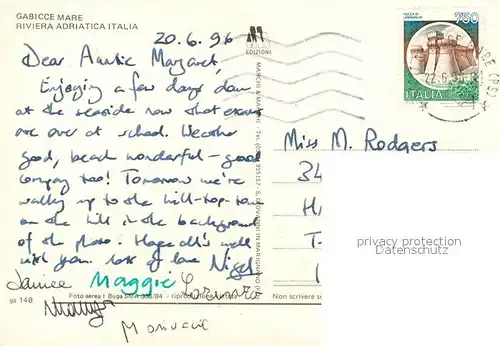 GABICCE MARE
RIVIERA ADRIATICA ITALIA
20.6.96
Dear Auntie Margaret,
Enjoying a few days down
at the seaside now that exams
are over at school. Weather
good, beach wonderful – good
company too! Tomorrow we're
walking up to the hill-top town
on the hill in the background
of the photo. Hope all's well
with you. Lots of love Nigel
Janice Maggie Lorenzo
ga 148
Foto aerea I Buga
EDIZIONI
MARCHI & MARCHI - Tel.
S. GIOVANNI IN MARIGNANO
750
ITALIA
22.6.
Miss M. Rodgers
34
H
T-
privacy protection
Datenschutz
Non scrivere s